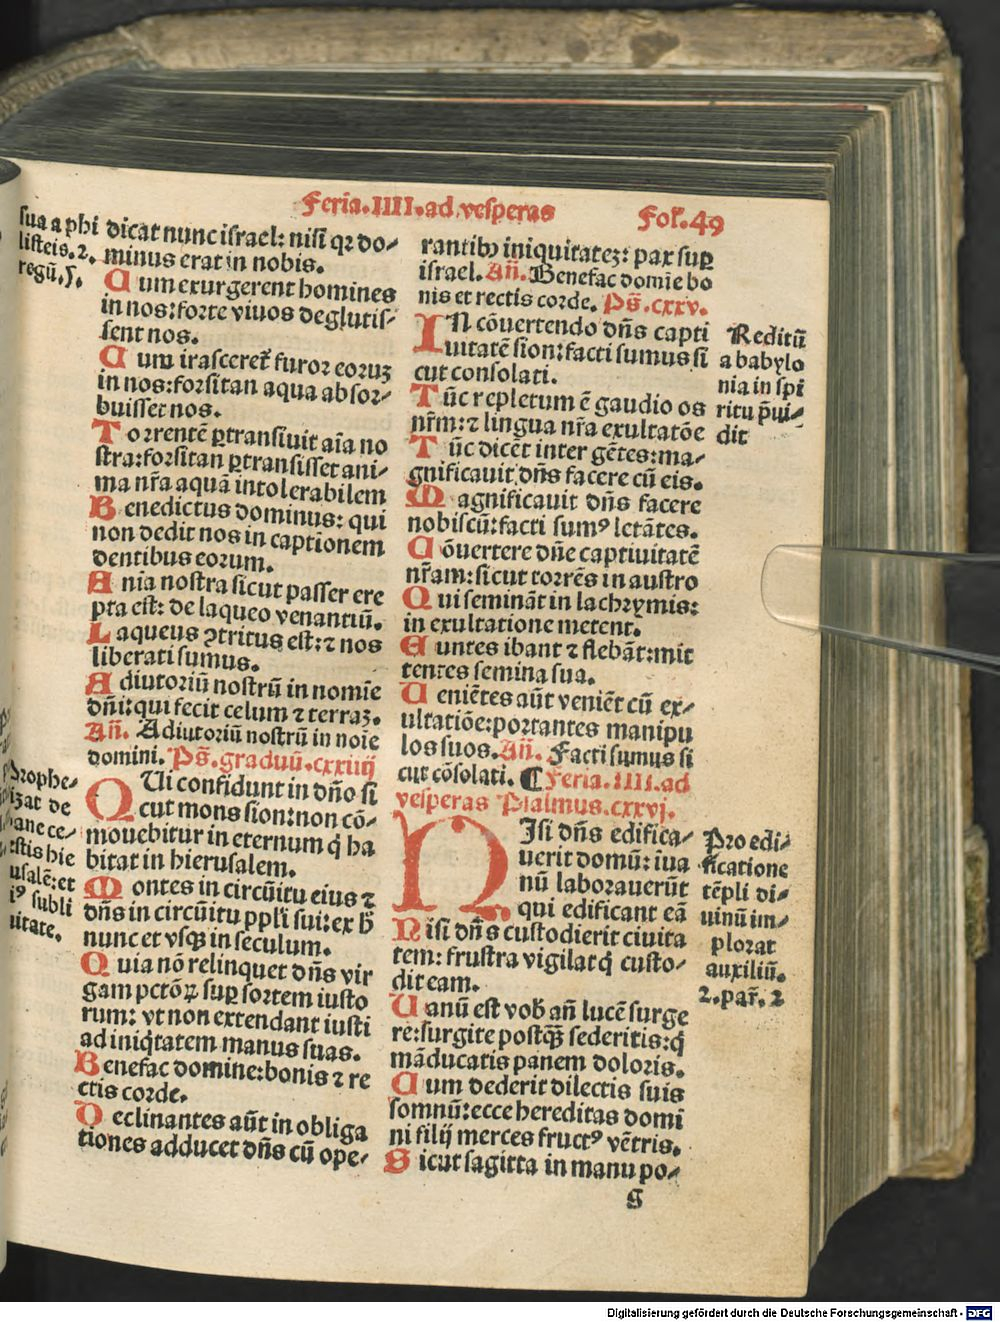 Feria.IIII.ad vesperas
Fol̃.49
sua a phi
listeis.2.
regũ.5.
dicat nunc israel: nisi qꝛ do-
minus erat in nobis.
Cum exurgerent homines
in nos: forte viuos deglutis-
sent nos.
Cum irasceret᷑ furor eoruꝫ
in nos: forsitan aqua absor-
buisset nos.
Torrentẽ ꝑtransiuit aĩa no
stra: forsitan ꝑtransisset ani-
ma nr̃a aquã intolerabilem
Benedictus dominus: qui
non dedit nos in captionem
dentibus eorum.
Anĩa nostra sicut passer ere
pta est: de laqueo venantiũ.
Laqueus ꝯtritus est: ⁊ nos
liberati sumus.
Adiutoriũ nostrũ in nomĩe
dñi: qui fecit celum ⁊ terraꝫ.
Añ. Adiutoriũ nostrũ in noĩe
domini. Ps̃.graduũ.cxxiiij
Prophe-
izat de
anc ce-
estis hie
usalẽ: et
iꝰ subli
uitate.
QUi confidunt in dño si
cut mons sion: non cõ-
mouebitur in eternum q̃ ha
bitat in hierusalem.
Montes in circũitu eius ⁊
dñs in circũitu ppl̃i sui: ex h̃
nunc et vsqꝫ in seculum.
Quia nõ relinquet dñs vir
gam pctõꝝ suꝑ sortem iusto
rum: vt non extendant iusti
ad iniq̃tatem manus suas.
Benefac domine: bonis ⁊ re
ctis corde.
Declinantes aũt in obliga
tiones adducet dñs cũ ope-
rantibꝰ iniquitateꝫ: pax suꝑ
israel. Añ. Benefac domĩe bo
nis et rectis corde. Ps̃.cxxv.
IN cõuertendo dñs capti
uitatẽ sion: facti sumus si
cut consolati.
Reditũ
a babylo
nia in spi
ritu p̃ui-
dit
Tũc repletum ẽ gaudio os
nr̃m: ⁊ lingua nr̃a exultatõe
Tũc dicẽt inter gẽtes: ma-
gnificauit dñs facere cũ eis.
Magnificauit dñs facere
nobiscũ: facti sumꝰ letãtes.
Cõuertere dñe captiuitatẽ
nr̃am: sicut torrẽs in austro
Qui seminãt in lachrymis:
in exultatione metent.
Euntes ibant ⁊ flebãt: mit
tentes semina sua.
Ueniẽtes aũt veniẽt cũ ex-
ultatiõe: portantes manipu
los suos. Añ. Facti sumus si
cut cõsolati. ¶ Feria.IIII.ad
vesperas Psalmus.cxxvj.
NIsi dñs edifica-
uerit domũ: iua
nũ laborauerũt
qui edificant eã
Pro edi-
ficatione
tẽpli di-
uinũ im-
plorat
auxiliũ.
2.par̃.2
Nisi dñs custodierit ciuita
tem: frustra vigilat q̃ custo-
dit eam.
Uanũ est vob̃ añ lucẽ surge
re: surgite postqꝫ̃ sederitis: q̃
mãducatis panem doloris.
Cum dederit dilectis suis
somnũ: ecce hereditas domi
ni filij merces fructꝰ vẽtris.
Sicut sagitta in manu po-
g
Digitalisierung gefördert durch die Deutsche Forschungsgemeinschaft - DFG